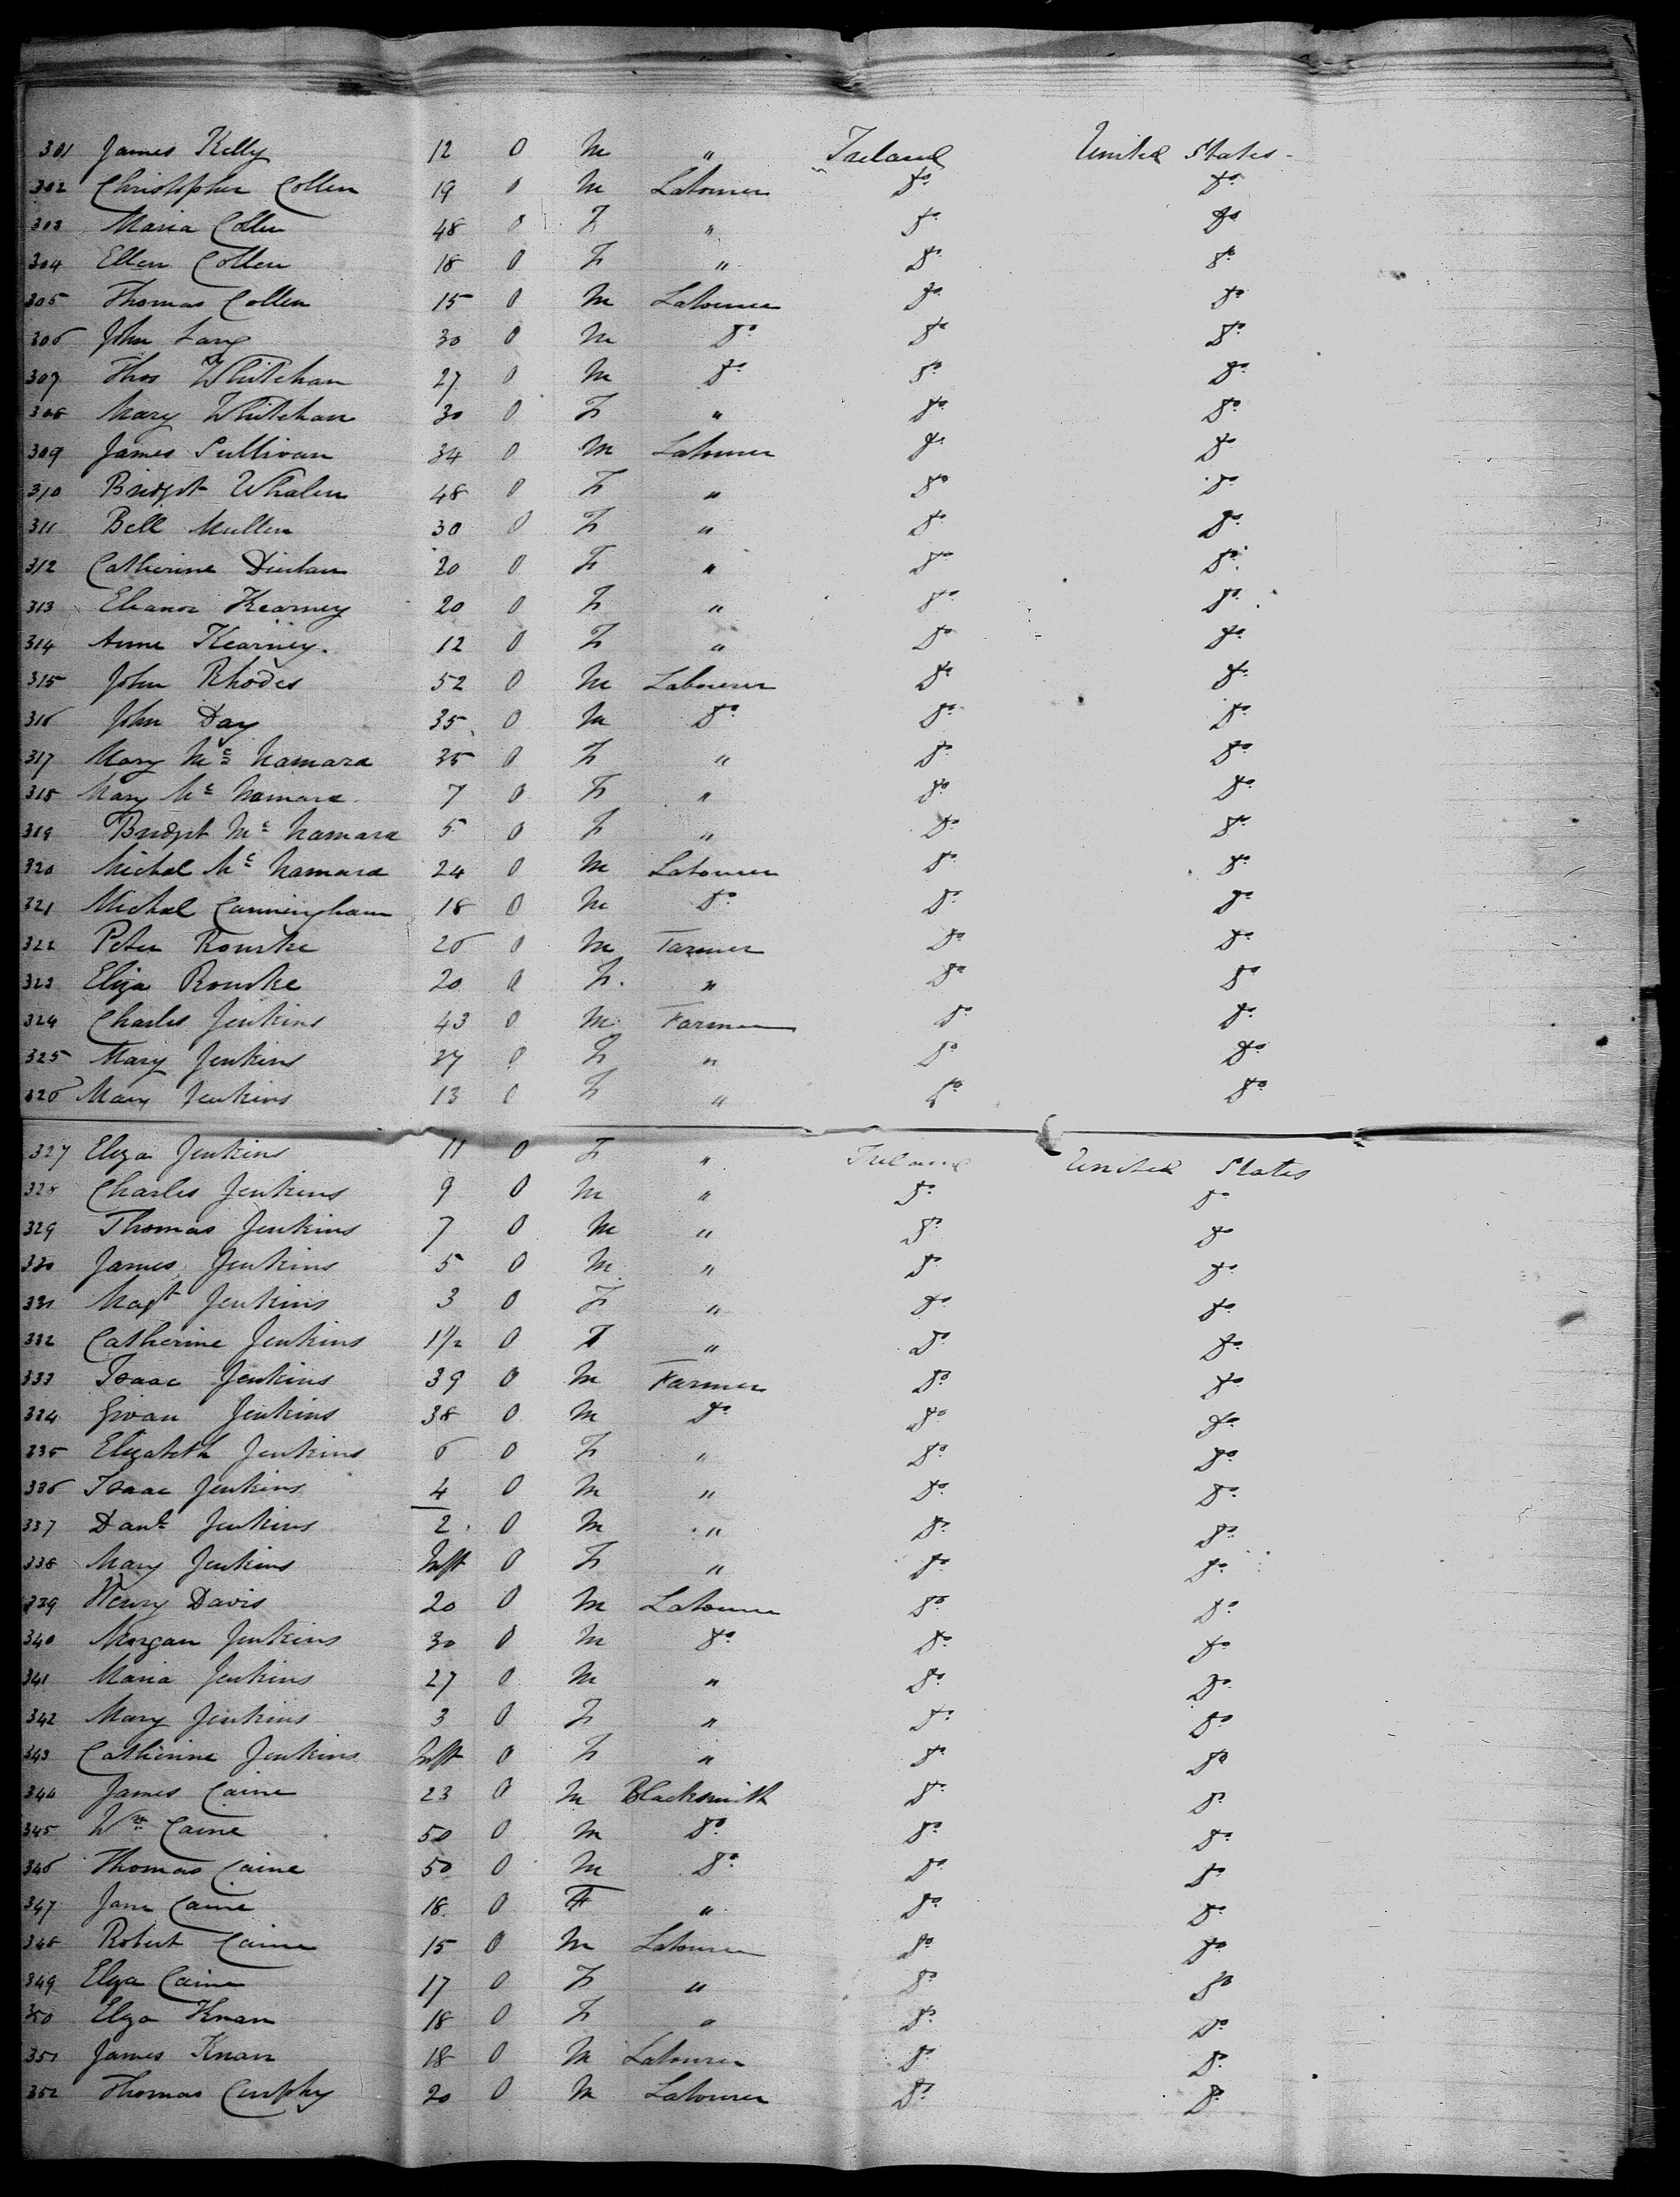 301 James Kelly 12 0 M " Ireland United States -
302 Christopher Collen 19 0 M Labourer Do Do
303 Maria Collen 48 0 F " Do Do
304 Ellen Collen 18 0 F " Do Do
305 Thomas Collen 15 0 M Labourer Do Do
306 John Lang 30 0 M Do Do Do
307 Thos Whitehan 27 0 M Do Do Do
308 Mary Whitehan 30 0 F " Do Do
309 James Sullivan 34 0 M Labourer Do Do
310 Bridget Whalen 48 0 F " Do Do
311 Bell Mullen 30 0 F " Do Do
312 Catherine 20 0 F " Do Do
313 Eleanor Kearney 20 0 F " Do Do
314 Anne Kearney. 12 0 F " Do Do
315 John Rhodes 52 0 M Labourer Do Do
316 John Day 35 0 M Do Do Do
317 Mary Mc Namara 35 0 F " Do Do
318 Mary Mc Namara 7 0 F " Do Do
319 Bridget Mc Namara 5 0 F " Do Do
320 Michal Mc Namara 24 0 M Labourer Do Do
321 Michal Cunningham 18 0 M Do Do Do
322 Peter Rourke 26 0 M Farmer Do Do
323 Eliza Rourke 20 0 F " Do Do
324 Charles Jenkins 43 0 M Farmer Do Do
325 Mary Jenkins 37 0 F " Do Do
326 Mary Jenkins 13 0 F " Do Do
327 Eliza Jenkins 11 0 F " Ireland United States
328 Charles Jenkins 9 0 M " Do Do
329 Thomas Jenkins 7 0 M " Do Do
330 James Jenkins 5 0 M " Do Do
331 Magt Jenkins 3 0 F " Do Do
332 Catherine Jenkins 1 1/2 0 F " Do Do
333 Isaac Jenkins 39 0 M Farmer Do Do
334 Jenkins 38 0 M Do Do Do
335 Elizabeth Jenkins 6 0 F " Do Do
336 Isaac Jenkins 4 0 M " Do Do
337 Danl Jenkins 2 0 M " Do Do
338 Mary Jenkins Inft 0 F " Do Do
339 Henry Davis 20 0 M Labourer Do Do
340 Morgan Jenkins 30 0 M Do Do Do
341 Maria Jenkins 27 0 M " Do Do
342 Mary Jenkins 3 0 F " Do Do
343 Catherine Jenkins Inft 0 F " Do Do
344 James Caine 23 0 M Blacksmith Do Do
345 Wm Caine 50 0 M Do Do Do
346 Thomas Caine 50 0 M Do Do Do
347 Jane Caine 18 0 F " Do Do
348 Robert Caine 15 0 M Labourer Do Do
349 Eliza Caine 17 0 F " Do Do
350 Eliza Knan 18 0 F " Do Do
351 James Knan 18 0 M Labourer Do Do
352 Thomas Curphy 20 0 M Labourer Do Do